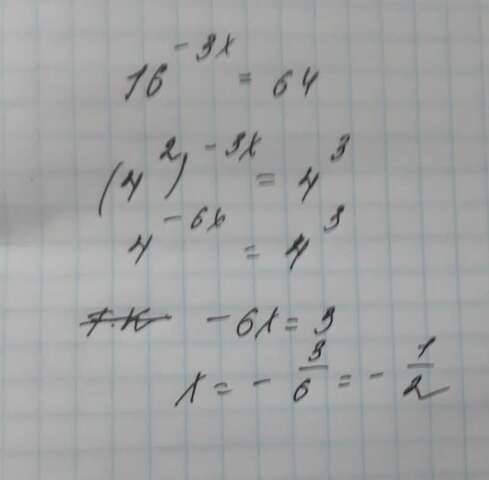 16^{-3x} = 64
(4^2)^{-3x} = 4^3
4^{-6x} = 4^3
т.к -6x = 3
x = -\frac{3}{6} = -\frac{1}{2}